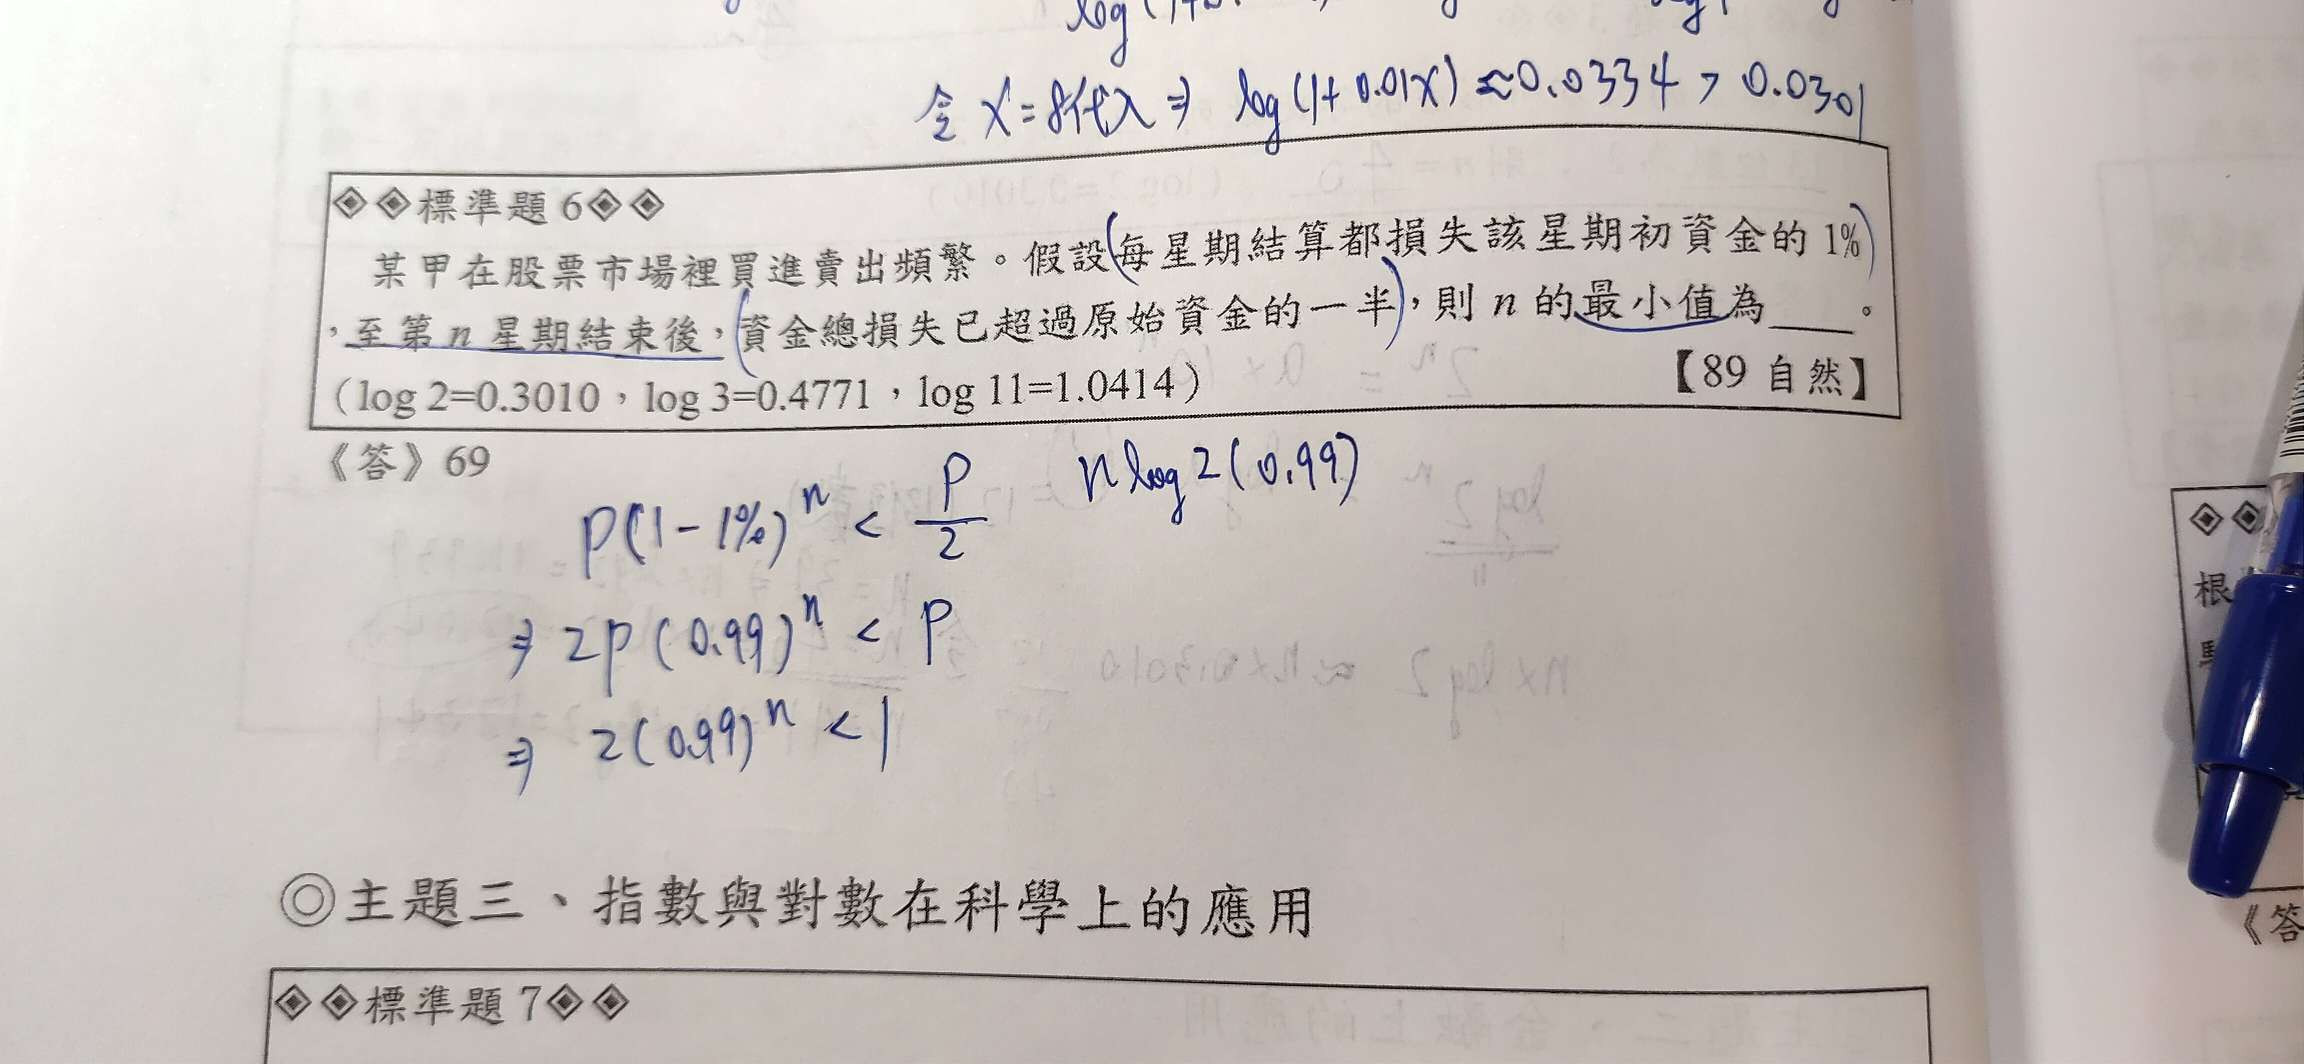 令 x=8代入 ⇒ log(1+0.01x) ≈0.0334 > 0.0301
◈◈標準題 6◈◈
某甲在股票市場裡買進賣出頻繁。假設每星期結算都損失該星期初資金的 1%
,至第 n 星期結束後,資金總損失已超過原始資金的一半,則 n 的最小值為____。
(log 2=0.3010,log 3=0.4771,log 11=1.0414) 【89 自然】
《答》69
P(1-1%)^n < P/2 n log 2(0.99)
⇒ 2P(0.99)^n < P
⇒ 2(0.99)^n < 1
◎主題三、指數與對數在科學上的應用
◈◈標準題 7◈◈
◈◈
根
《答